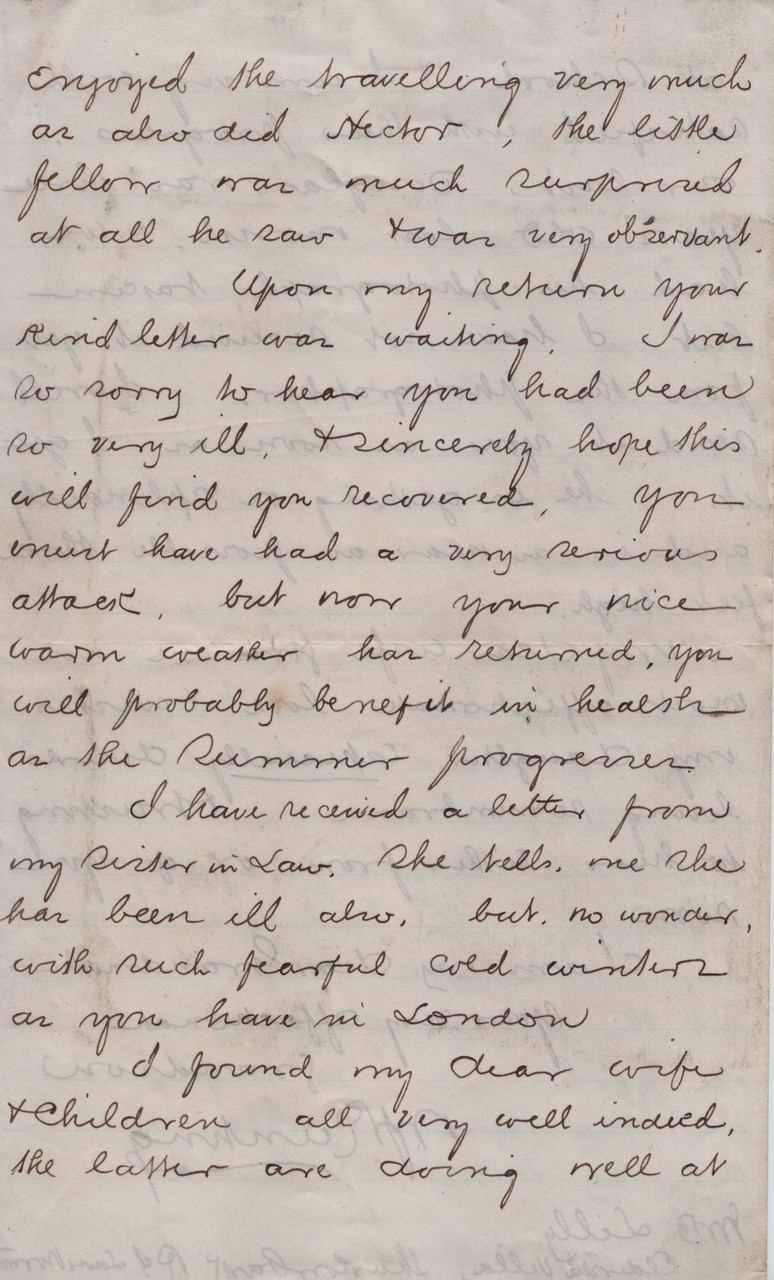 enjoyed the travelling very much
as also did Hector, the little
fellow was much surprised
at all he saw & was very observant.
Upon my return your
kind letter was waiting. I was
so sorry to hear you had been
so very ill, & sincerely hope this
will find you recovered, you
must have had a very serious
attack, but now your nice
warm weather has returned, you
will probably benefit in health
as the Summer progresses
I have received a letter from
my Sister in Law. She tells. me she
has been ill also, but. no wonder,
with such fearful cold winters
as you have in London
I found my dear wife
& Children all very well indeed,
the latter are doing well at